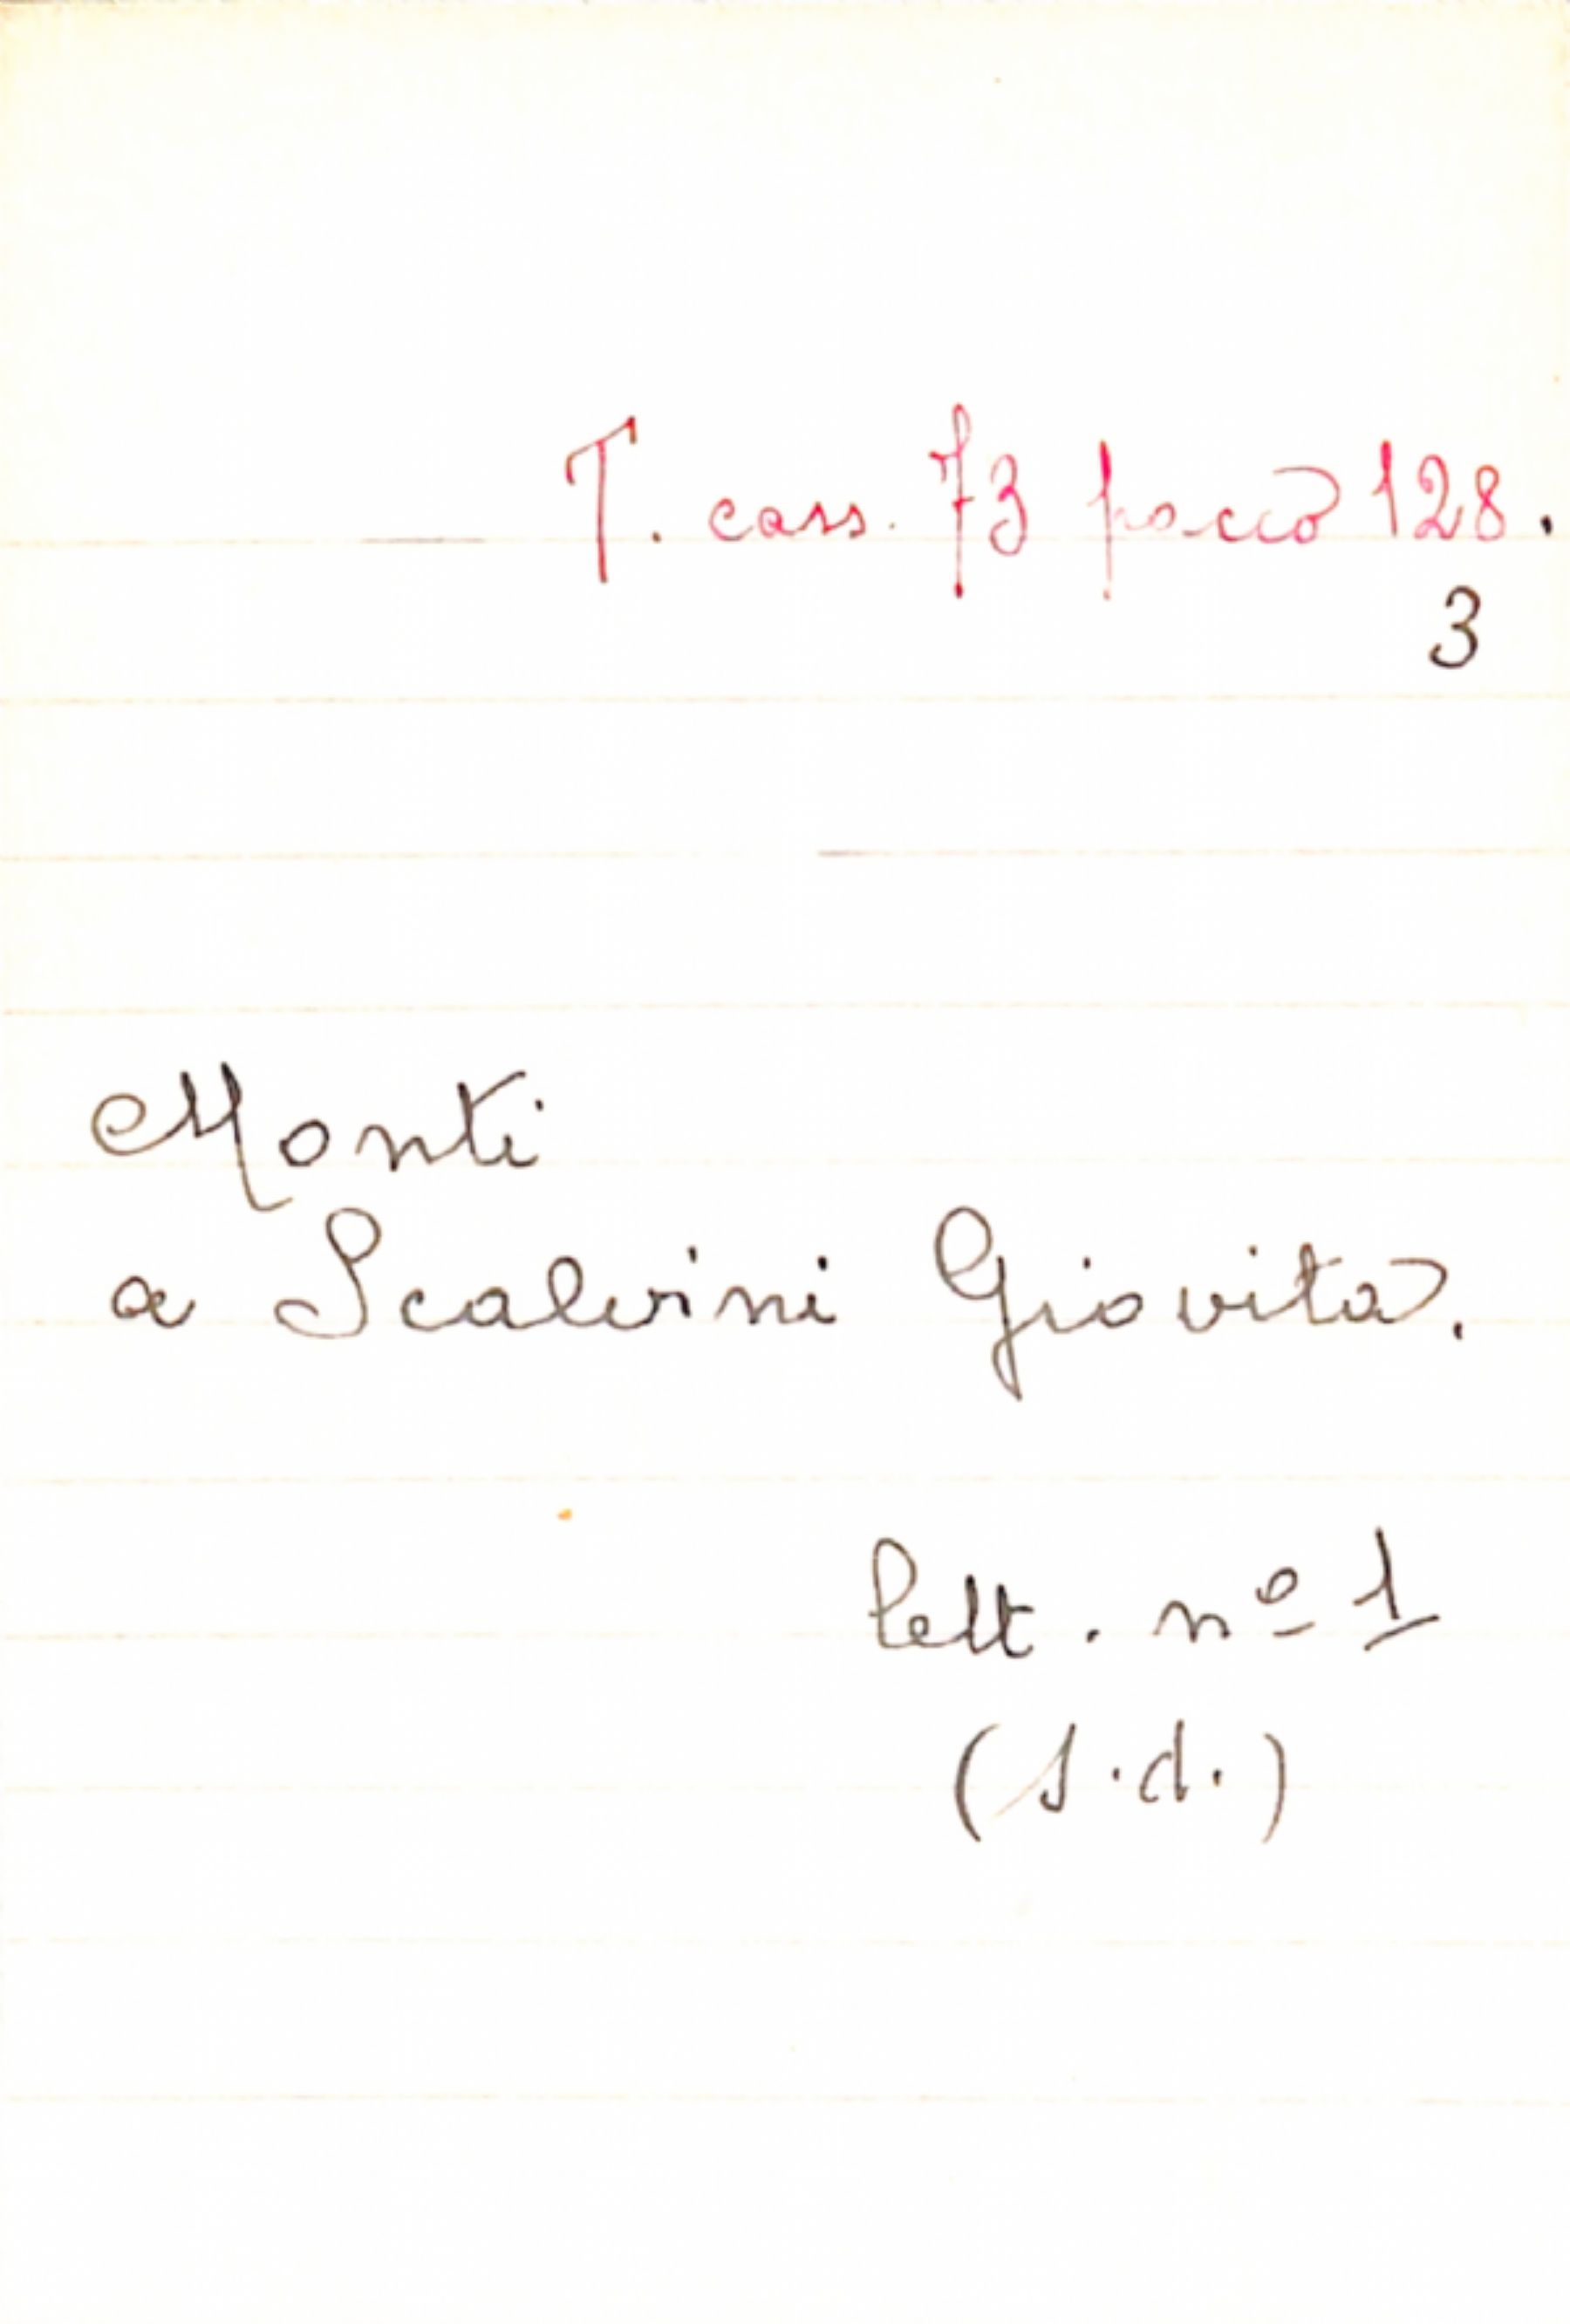 T. cass. 73 pacco 128.
3
Monti
a Scalvini Giovita.
lett. nº 1
(s.d.)